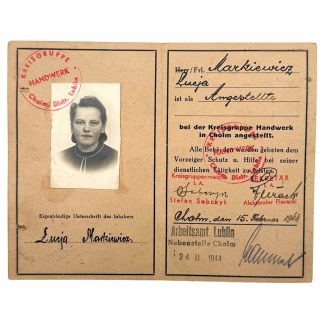 KREISGRUPPE
HANDWERK
Cholm, Distr. Lublin
Eigenhändige Unterschrift des Inhabers
Łucja Markiewicz
Herr/Frl. Markiewicz
Łucja
ist als Angestellte
bei der Kreisgruppe Handwerk
in Cholm angestellt.
Alle Behörden werden gebeten dem
Vorzeiger Schutz u. Hilfe bei seiner
dienstlichen Tätigkeit zu
HANDWERK
SEKRETÄR
I.A. I.A.
Stefan Sobczyk Alexander Pieracki
Cholm, den 15. Februar 1944
Arbeitsamt Lublin
Nebenstelle Cholm
24 II 1944